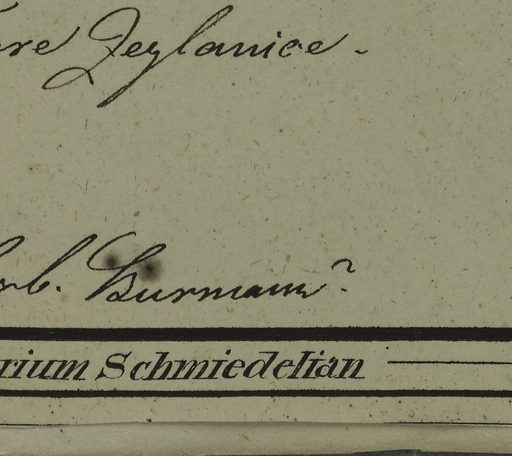 re Zeylanice.
rb. Burmann?
rium Schmiedelian